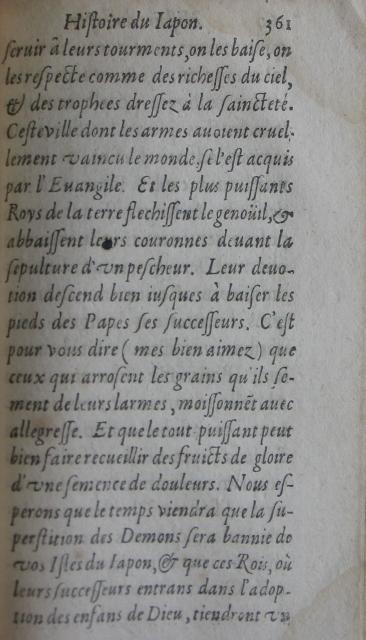 Histoire du Iapon. 361
seruir à leurs tourments, on les baise, on
les respecte comme des richesses du ciel,
& des trophees dressez à la saincteté.
Ceste ville dont les armes auoient cruel-
lement vaincu le monde, se l'est acquis
par l'Euangile. Et les plus puissants
Roys de la terre flechissent le genoüil, &
abbaissent leurs couronnes deuant la
sepulture d'vn pescheur. Leur deuo-
tion descend bien iusques à baiser les
pieds des Papes ses successeurs. C'est
pour vous dire (mes bien aimez) que
ceux qui arrosent les grains qu'ils se-
ment de leurs larmes, moissonnēt auec
allegresse. Et que le tout puissant peut
bien faire recueillir des fruicts de gloire
d'vne semence de douleurs. Nous es-
perons que le temps viendra que la su-
perstition des Demons sera bannie de
vos Isles du Iapon, & que ces Rois, où
leurs successeurs entrans dans l'adop-
tion des enfans de Dieu, tiendront vn